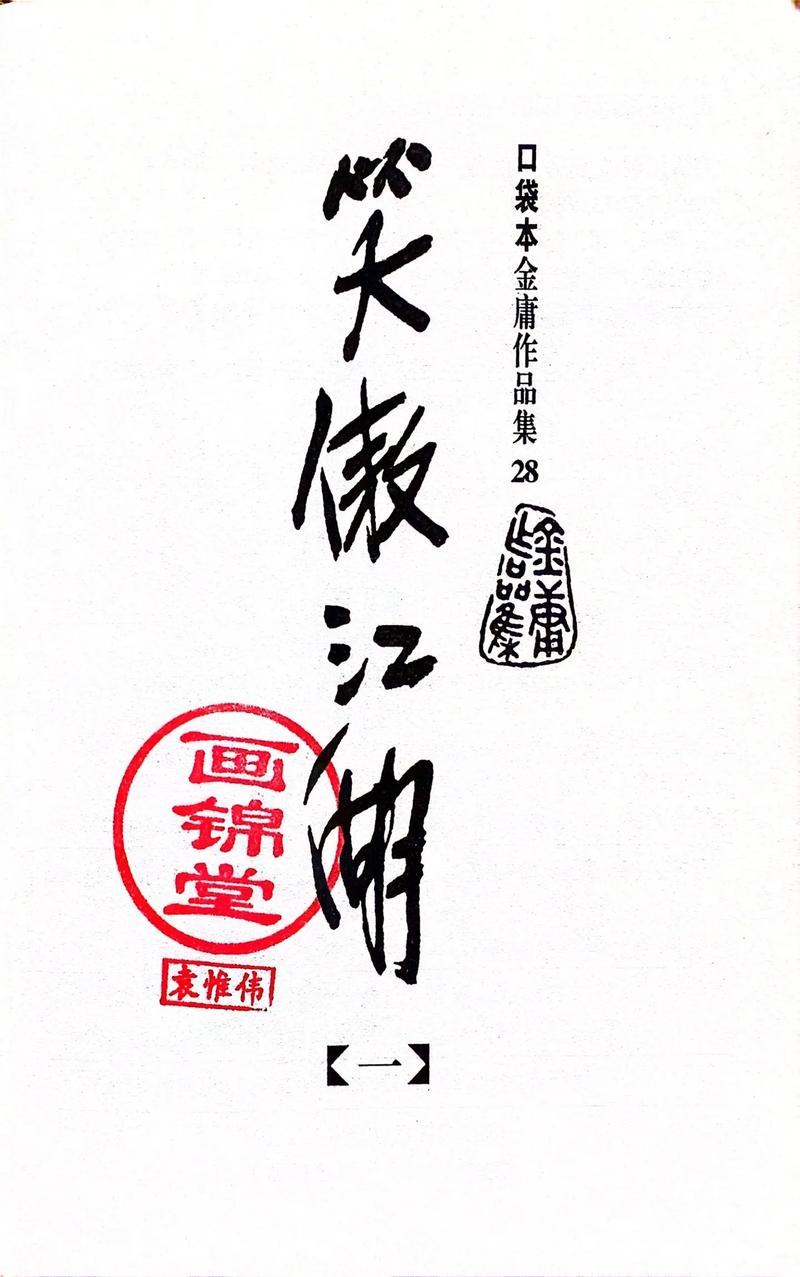 口袋本金庸作品集28
金庸
作品集
笑傲江湖
【一】
画锦堂
袁惟伟